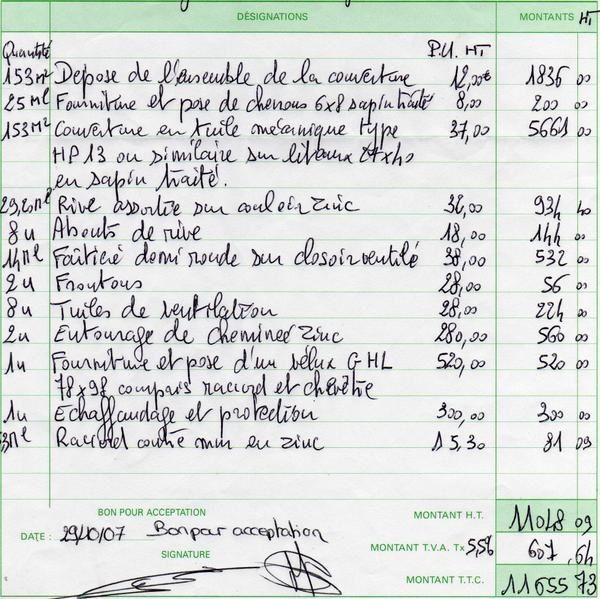 DÉSIGNATIONS MONTANTS HT
Quantité P.U. HT
153 m² Depose de l'ensemble de la couverture 12,00€ 1836 00
25 ml Fourniture et pose de chenons 6x8 sapin traité 8,00 200 00
153 m² Couverture en tuile mécanique type 37,00 5661 00
HP 13 ou similaire sur litaux 27x40
en sapin traité.
29,20 ml Rive assortie sur couloir zinc 32,00 934 40
8 u Abouts de rive 18,00 144 00
14 ml Faitière demi ronde sur closoir ventilé 38,00 532 00
2 u Frontons 28,00 56 00
8 u Tuiles de ventilation 28,00 224 00
2 u Entourage de cheminée zinc 280,00 560 00
1 u Fourniture et pose d'un velux GHL 520,00 520 00
78x98 compris raccord et chevêtre
1 u Echaffaudage et protection 300,00 300 00
ml Raccord contre mur en zinc 15,30 81 09
BON POUR ACCEPTATION MONTANT H.T. 11048 09
DATE : 29/10/07 Bon pour acceptation MONTANT T.V.A. Tx 5,5% 607,64
SIGNATURE
MONTANT T.T.C. 11655 73